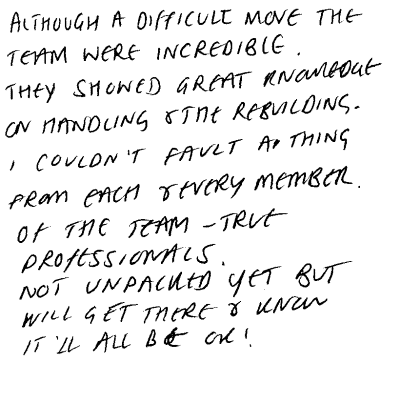 ALTHOUGH A DIFFICULT MOVE THE
TEAM WERE INCREDIBLE.
THEY SHOWED GREAT KNOWLEDGE
ON HANDLING & THE REBUILDING.
I COULDN'T FAULT A THING
FROM EACH & EVERY MEMBER.
OF THE TEAM - TRUE
PROFESSIONALS.
NOT UNPACKED YET BUT
WILL GET THERE & KNOW
IT'LL ALL BE OK!